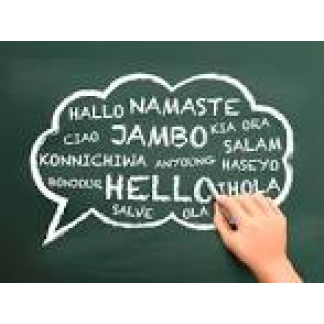 HALLO NAMASTE
CIAO JAMBO KIA ORA
SALAM
KONNICHIWA ANYOUNG HASEYO
BONJOUR HELLO
SALVE OLA